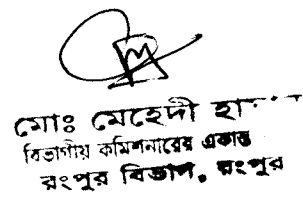 মোঃ মেহেদী
বিভাগীয় কমিশনারের একান্ত
রংপুর বিভাগ, রংপুর